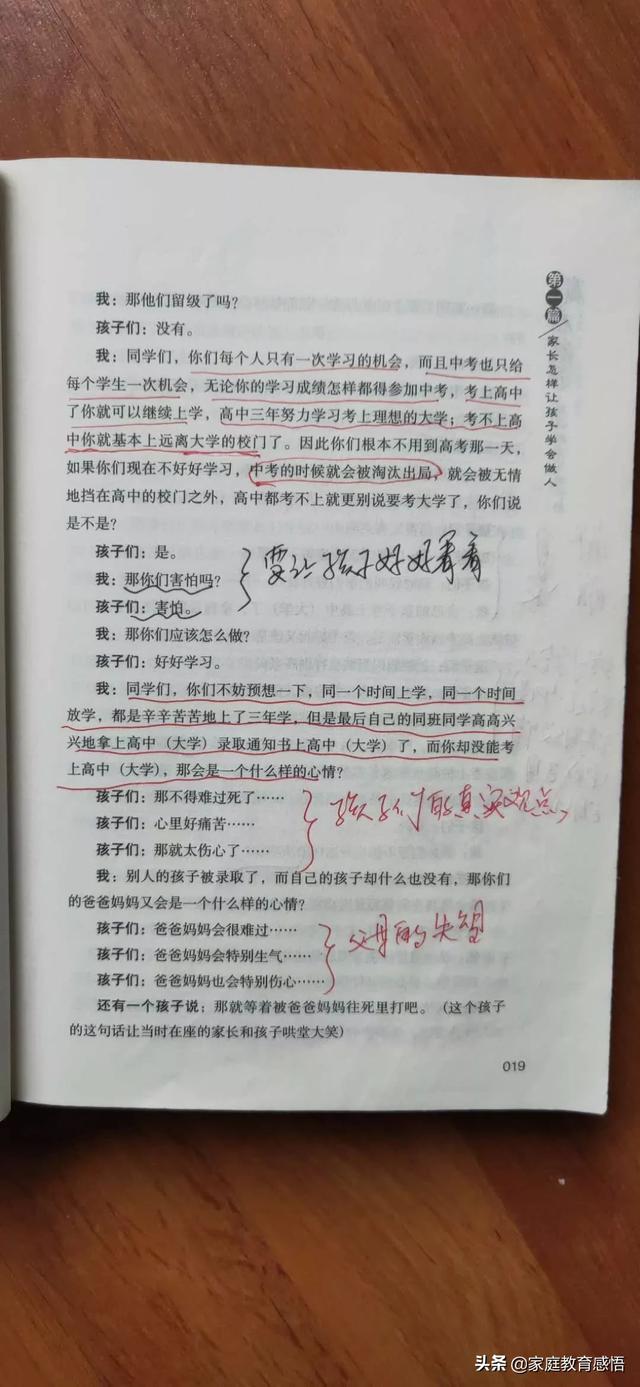 第一篇
家长怎样让孩子学会做人
我：那他们留级了吗？
孩子们：没有。
我：同学们，你们每个人只有一次学习的机会，而且中考也只给
每个学生一次机会，无论你的学习成绩怎样都得参加中考，考上高中
了你就可以继续上学，高中三年努力学习考上理想的大学；考不上高
中你就基本上远离大学的校门了。因此你们根本不用到高考那一天，
如果你们现在不好好学习，中考的时候就会被淘汰出局，就会被无情
地挡在高中的校门之外，高中都考不上就更别说要考大学了，你们说
是不是？
孩子们：是。
我：那你们害怕吗？
要让孩子好好看看
孩子们：害怕。
我：那你们应该怎么做？
孩子们：好好学习。
我：同学们，你们不妨预想一下，同一个时间上学，同一个时间
放学，都是辛辛苦苦地上了三年学，但是最后自己的同班同学高高兴
兴地拿上高中（大学）录取通知书上高中（大学）了，而你却没能考
上高中（大学），那会是一个什么样的心情？
孩子们：那不得难过死了……
孩子们：心里好痛苦……
孩子们的真实观点
孩子们：那就太伤心了……
我：别人的孩子被录取了，而自己的孩子却什么也没有，那你们
的爸爸妈妈又会是一个什么样的心情？
孩子们：爸爸妈妈会很难过……
孩子们：爸爸妈妈会特别生气……
父母的失望
孩子们：爸爸妈妈也会特别伤心……
还有一个孩子说：那就等着被爸爸妈妈往死里打吧。（这个孩子
的这句话让当时在座的家长和孩子哄堂大笑）
019
头条 @家庭教育感悟